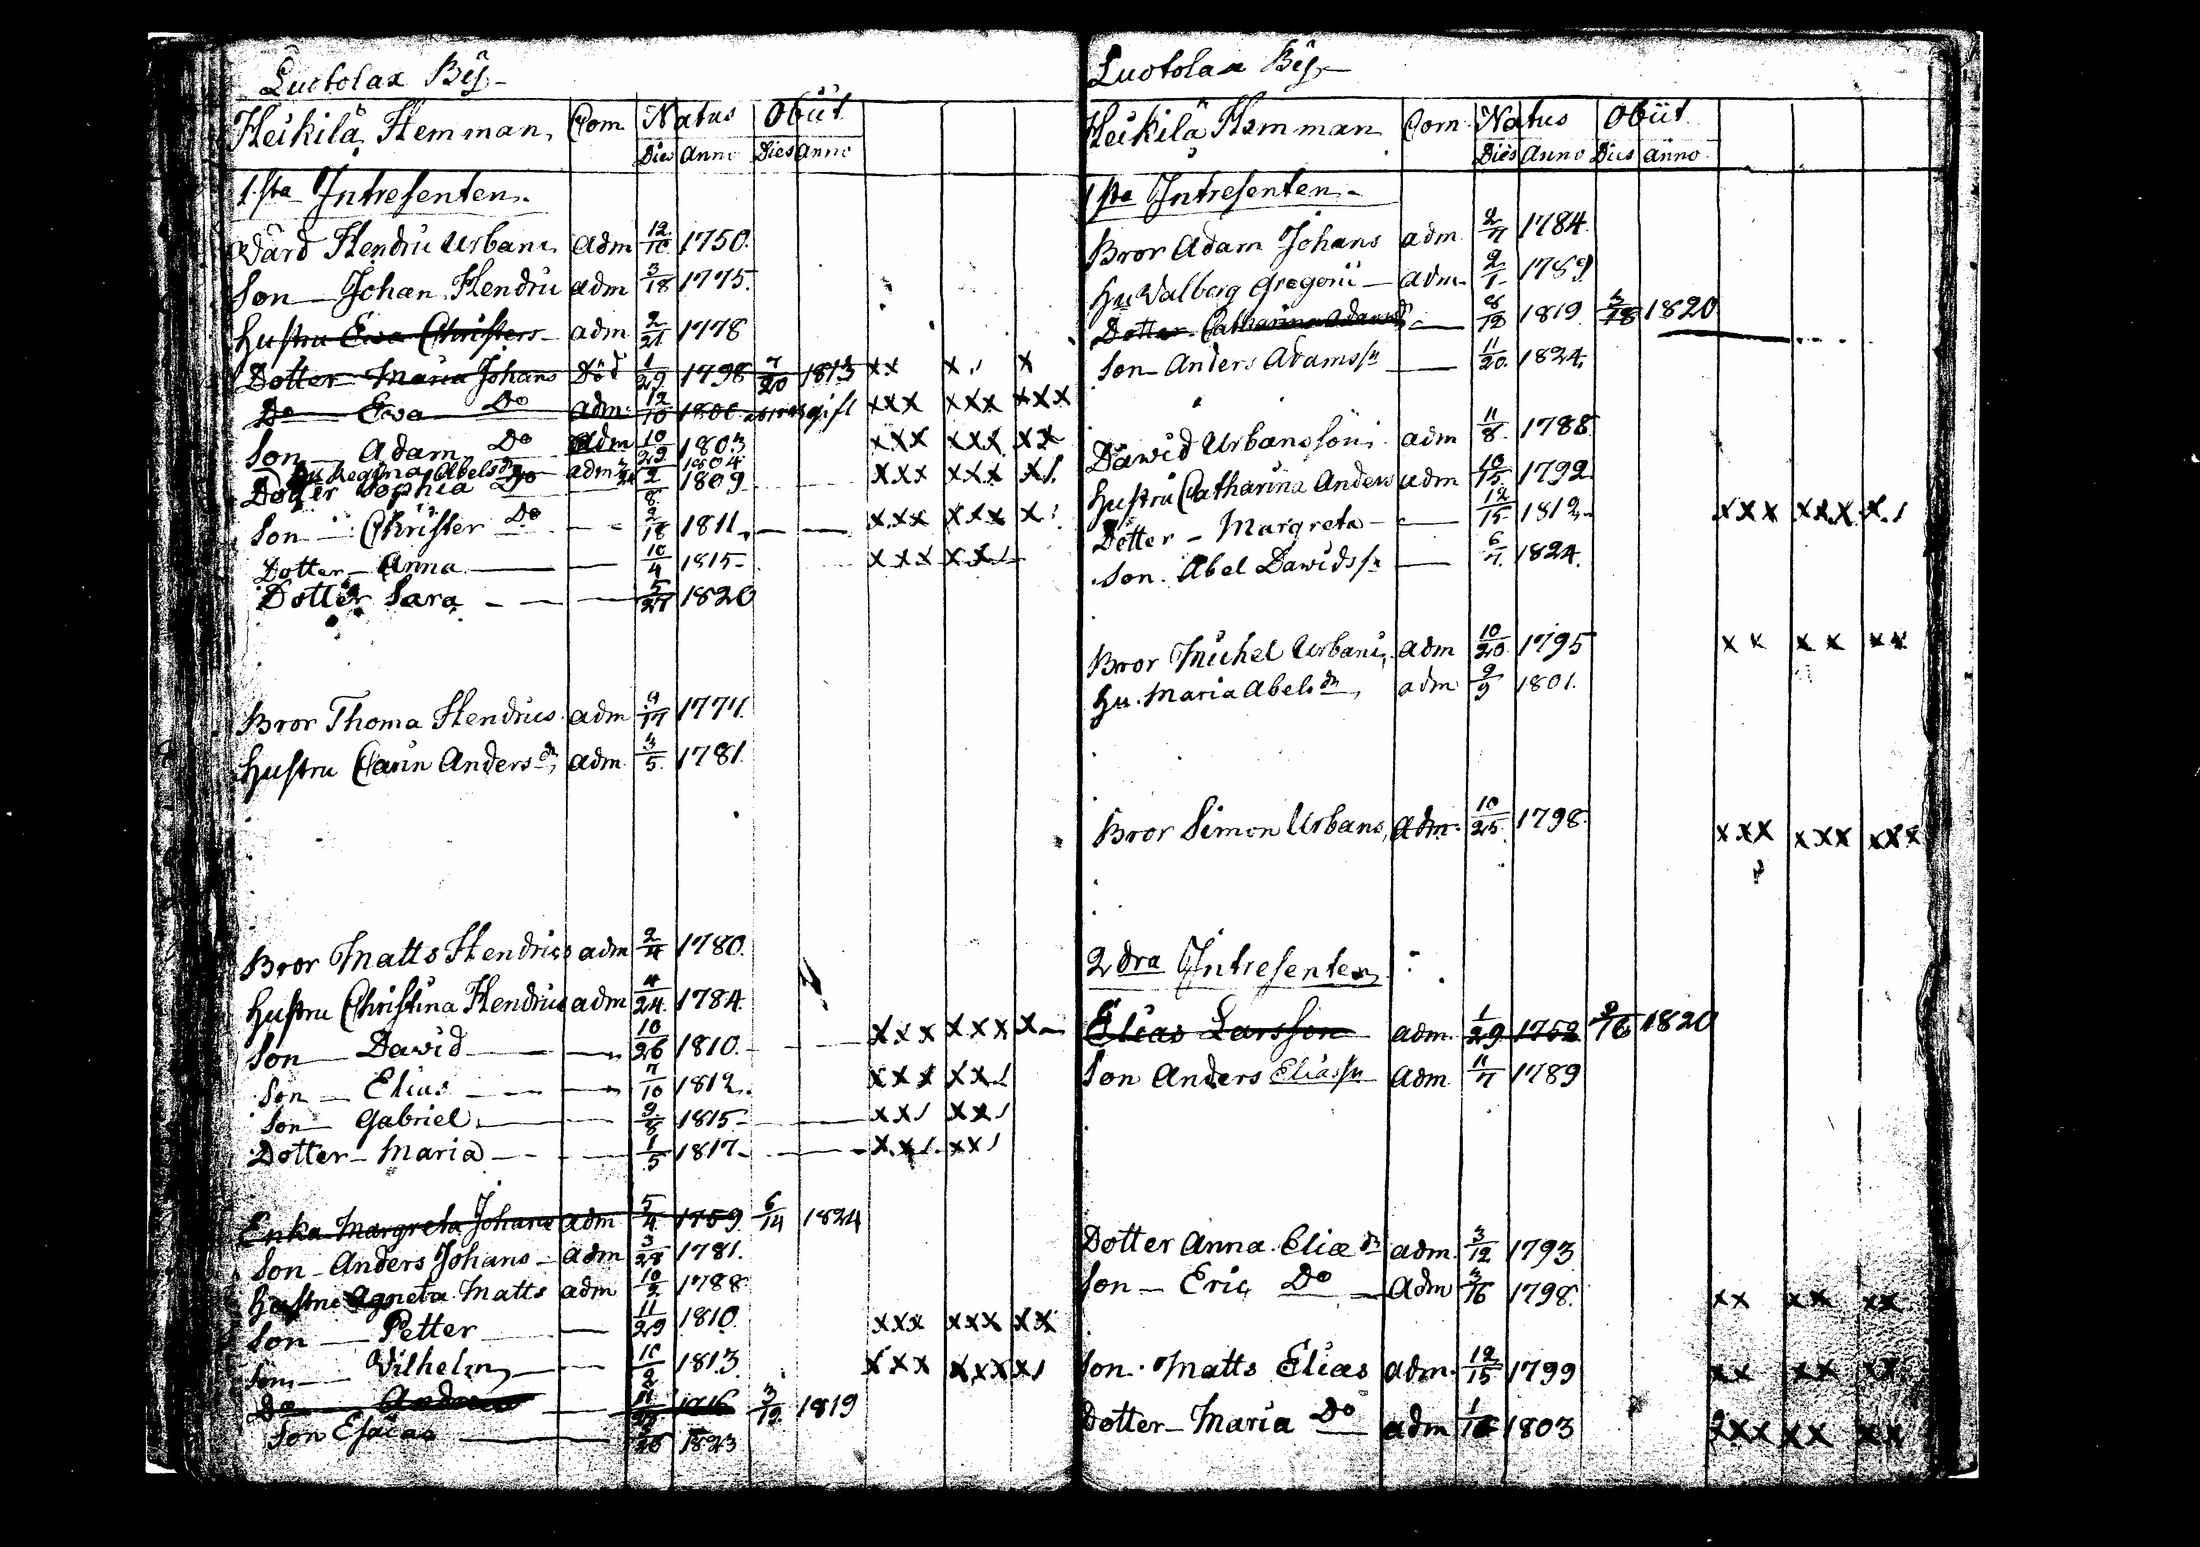 Luotolax Bÿ
Heikilä Hemman. Com Natus Obiit
Dies Anno Dies Anno
1:sta Intresenten.
Vård Hendric Urbani adm 12/10 1750.
Son Johan Hendric adm 3/18 1775.
Hustru Ewa Christers adm 2/21 1778
Dotter Maria Johans Död 1/29 1798 7/20 1813 xx x x
Do Ewa Do adm 12/10 1800 gift xxx xxx xxx
Son Adam Do adm 10/29 1803 xxx xxx xx
Hu Regina Abels dr adm 1804
Dotter Sophia Do 1809 xxx xxx x
Son Christer Do 9/18 1811 xxx xxx x
Dotter Anna 10/4 1815 xxx xx
Dotter Sara 5/27 1820
Bror Thoma Hendrics adm 9/17 1777.
Hustru Carin Anders dr adm 3/5 1781.
Bror Matts Hendrics adm 2/4 1780.
Hustru Christina Hendrics adm 4/24 1784.
Son David 10/26 1810. xxx xxx x
Son Elias 7/10 1812. xxx xx
Son Gabriel 9/8 1815 xx xx
Dotter Maria 1/5 1817 xx xx
Enka Margreta Johans adm 5/4 1759 6/14 1824
Son Anders Johans adm 3/28 1781.
Hustru Agneta Matts adm 10/2 1788
Son Petter 11/29 1810 xxx xxx xx
Son Vilhelm 10/2 1813 xxx xxx x
Do Anders 1816 3/12 1819
Son Esaias 1823
Luotolax Bÿ
Heikilä Hemman Com Natus Obiit
Dies Anno Dies Anno
1sta Intresenten
Bror Adam Johans adm 2/7 1784.
Hu Walborg Gregorii adm. 2/1 1789
Dotter Catharina Adams dr 8/12 1819 3/18 1820
Son Anders Adamss:n 11/20 1824.
Dawid Urbanssöni adm 11/8 1788
Hustru Catharina Anders adm 10/15 1792
Dotter Margreta 12/15 1812 xxx xxx x
Son Abel Dawidss:n 6/7 1824.
Bror Michel Urbani adm 10/20 1795 xx xx xx
Hu. Maria Abels dr adm 9/9 1801.
Bror Simon Urbans, adm 10/25 1798. xxx xxx xxx
2dra Intresenten
Elias Larsson adm. 1/29 1752 3/16 1820
Son Anders Eliass:n adm 11/7 1789
Dotter Anna Eliæ dr adm. 3/12 1793
Son Eric Do Adm 3/16 1798. xx xx xx
Son Matts Elias adm. 12/15 1799 xx xx xx
Dotter Maria Do adm 1/16 1803 xxx xx xx